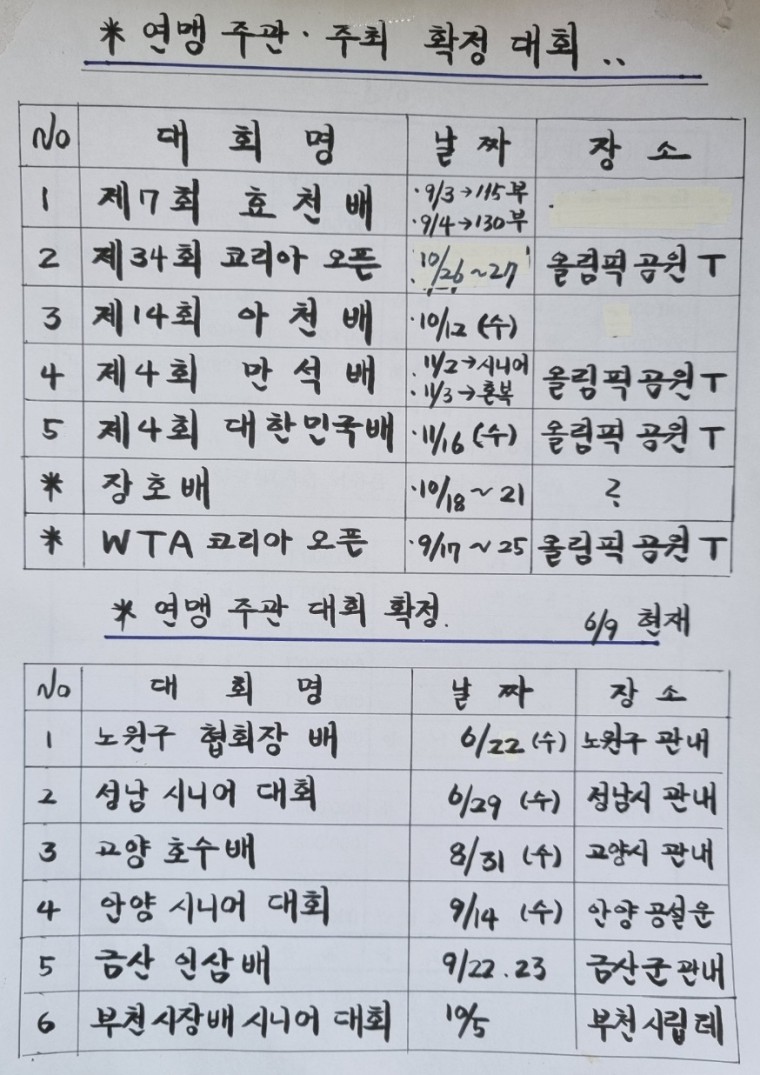 * 연맹 주관 · 주최 확정 대회 ..
No 대 회 명 날 짜 장 소
1 제7회 효 천 배 · 9/3 → 115부
· 9/4 → 130부
2 제34회 코리아 오픈 10/26 ~ 27 올림픽 공원 T
3 제14회 아 천 배 · 10/12 (수)
4 제4회 만 석 배 · 11/2 → 시니어 올림픽 공원 T
· 11/3 → 혼복
5 제4회 대한민국배 · 11/16 (수) 올림픽 공원 T
* 장호배 · 10/18 ~ 21 ?
* WTA 코리아 오픈 · 9/17 ~ 25 올림픽 공원 T
* 연맹 주관 대회 확정. 6/9 현재
No 대 회 명 날 짜 장 소
1 노원구 협회장 배 6/22 (수) 노원구 관내
2 성남 시니어 대회 6/29 (수) 성남시 관내
3 고양 호수배 8/31 (수) 고양시 관내
4 안양 시니어 대회 9/14 (수) 안양 공설운
5 금산 인삼배 9/22.23 금산군 관내
6 부천시장배 시니어 대회 10/5 부천시립테